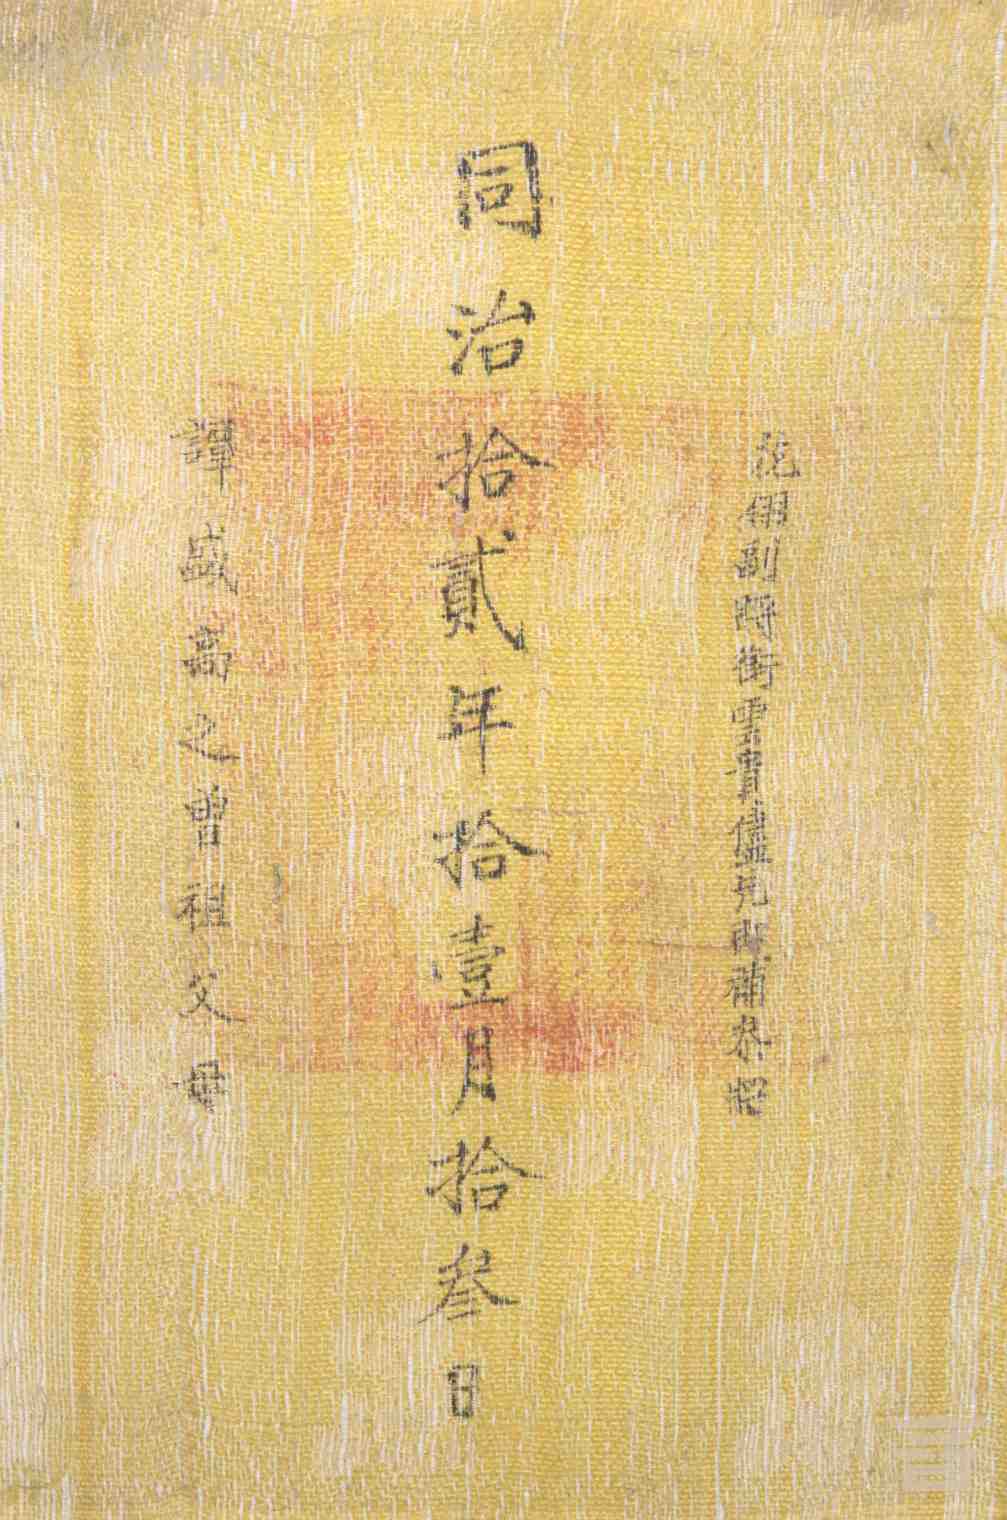 花翎副將銜雲貴儘先補參將
同治拾貳年拾壹月拾叁日
譚盛高之曾祖父母